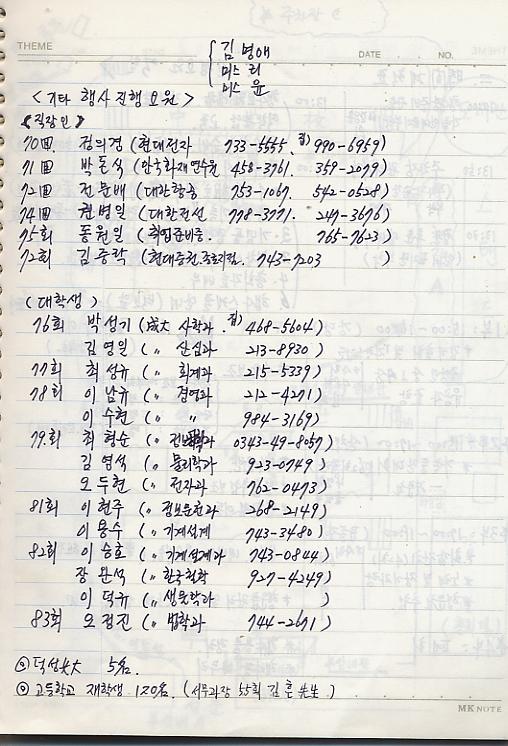 THEME
DATE
NO.
김명애
미스 리
미스 윤
<기타 행사 진행 요원>
《직장인》
70회 김의겸 (현대전자 733-5555. 집) 990-6959)
71회 박돈식 (한국화재연수원 458-3761. 359-2079)
72회 전운배 (대한항공 753-1067. 542-0528)
74회 권병일 (대한전선 778-3771. 247-3676)
75회 동원일 (취업준비중. 765-7623)
72회 김중락 (현대증권 종로지점. 743-7203 )
(대학생)
76회 박성기 (成大 사학과 집) 468-5604)
김영일 (〃 산심과 213-8930 )
77회 최성규 (〃 회계과 215-5339)
78회 이남규 (〃 경영과 212-4271)
이수현 (〃 〃 984-3169)
79.회 최형순 (〃 0343-49-8057)
김영석 (〃 물리학과 923-0749)
오두현 (〃 전자과 762-0473)
81회 이현주 (〃 정보공학과 268-2149)
이용수 (〃 기계설계 743-3480)
82회 이승호 (〃 기계설계과 743-0844)
장완석 (〃 한국철학 927-4249)
이덕규 (〃 생물학과 )
83회 오정진 (〃 법학과 744-2671)
◎ 덕성女大 5名.
◎ 고등학교 재학생 120名. (서무과장 55회 김훈 先生)
MK NOTE